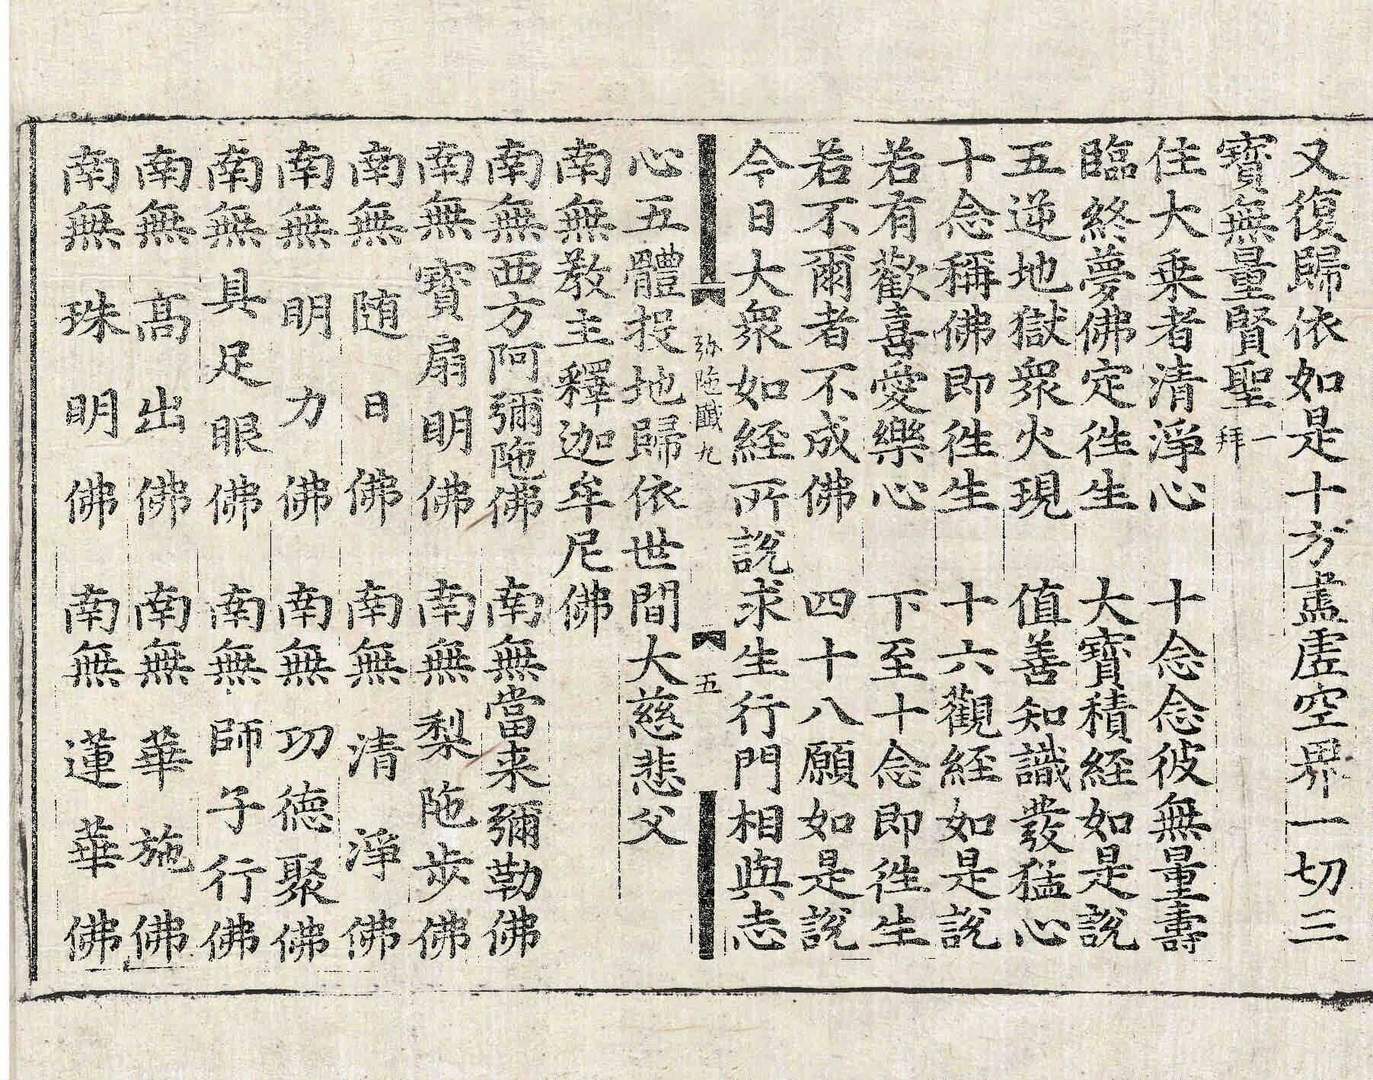 又復歸依如是十方盡虛空界一切三
寶無量賢聖一拜
住大乘者清淨心　十念念彼無量壽
臨終夢佛定徃生　大寶積經如是說
五逆地獄衆火現　值善知識發猛心
十念稱佛即徃生　十六觀經如是說
若有歡喜愛樂心　下至十念即徃生
若不爾者不成佛　四十八願如是說
今日大衆如經所說求生行門相與志
弥陁懺九　五
心五體投地歸依世間大慈悲父
南無教主釋迦牟尼佛
南無西方阿彌陁佛　南無當来彌勒佛
南無寶扇明佛　南無梨陁步佛
南無随日佛　南無清淨佛
南無明力佛　南無功德聚佛
南無具足眼佛　南無師子行佛
南無高出佛　南無華施佛
南無珠明佛　南無蓮華佛